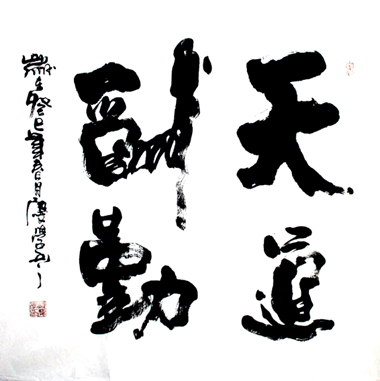 天道
酬勤
歲在癸巳年春月